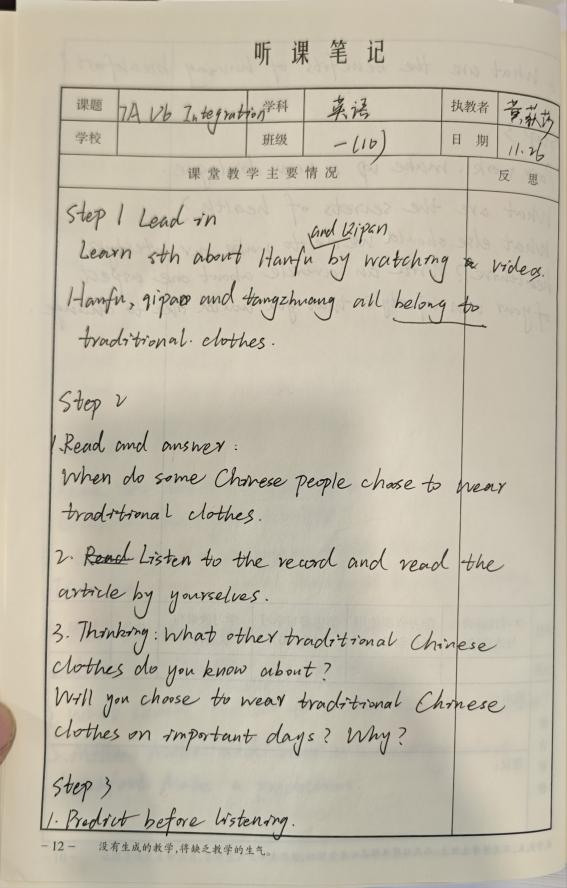 听课笔记
课题 7A U6 Integration 学科 英语 执教者
学校 班级 一(10) 日期 11.26
课堂教学主要情况 反思
Step 1 Lead in
and Kipan
Learn sth about Hanfu by watching videos.
Hanfu, qipao and tangzhuang all belong to
traditional clothes.
Step 2
1. Read and answer:
When do some Chinese people choose to wear
traditional clothes.
2. Read Listen to the record and read the
article by yourselves.
3. Thinking: What other traditional Chinese
clothes do you know about?
Will you choose to wear traditional Chinese
clothes on important days? Why?
Step 3
1. Predict before listening.
- 12 - 没有生成的教学,将缺乏教学的生气。